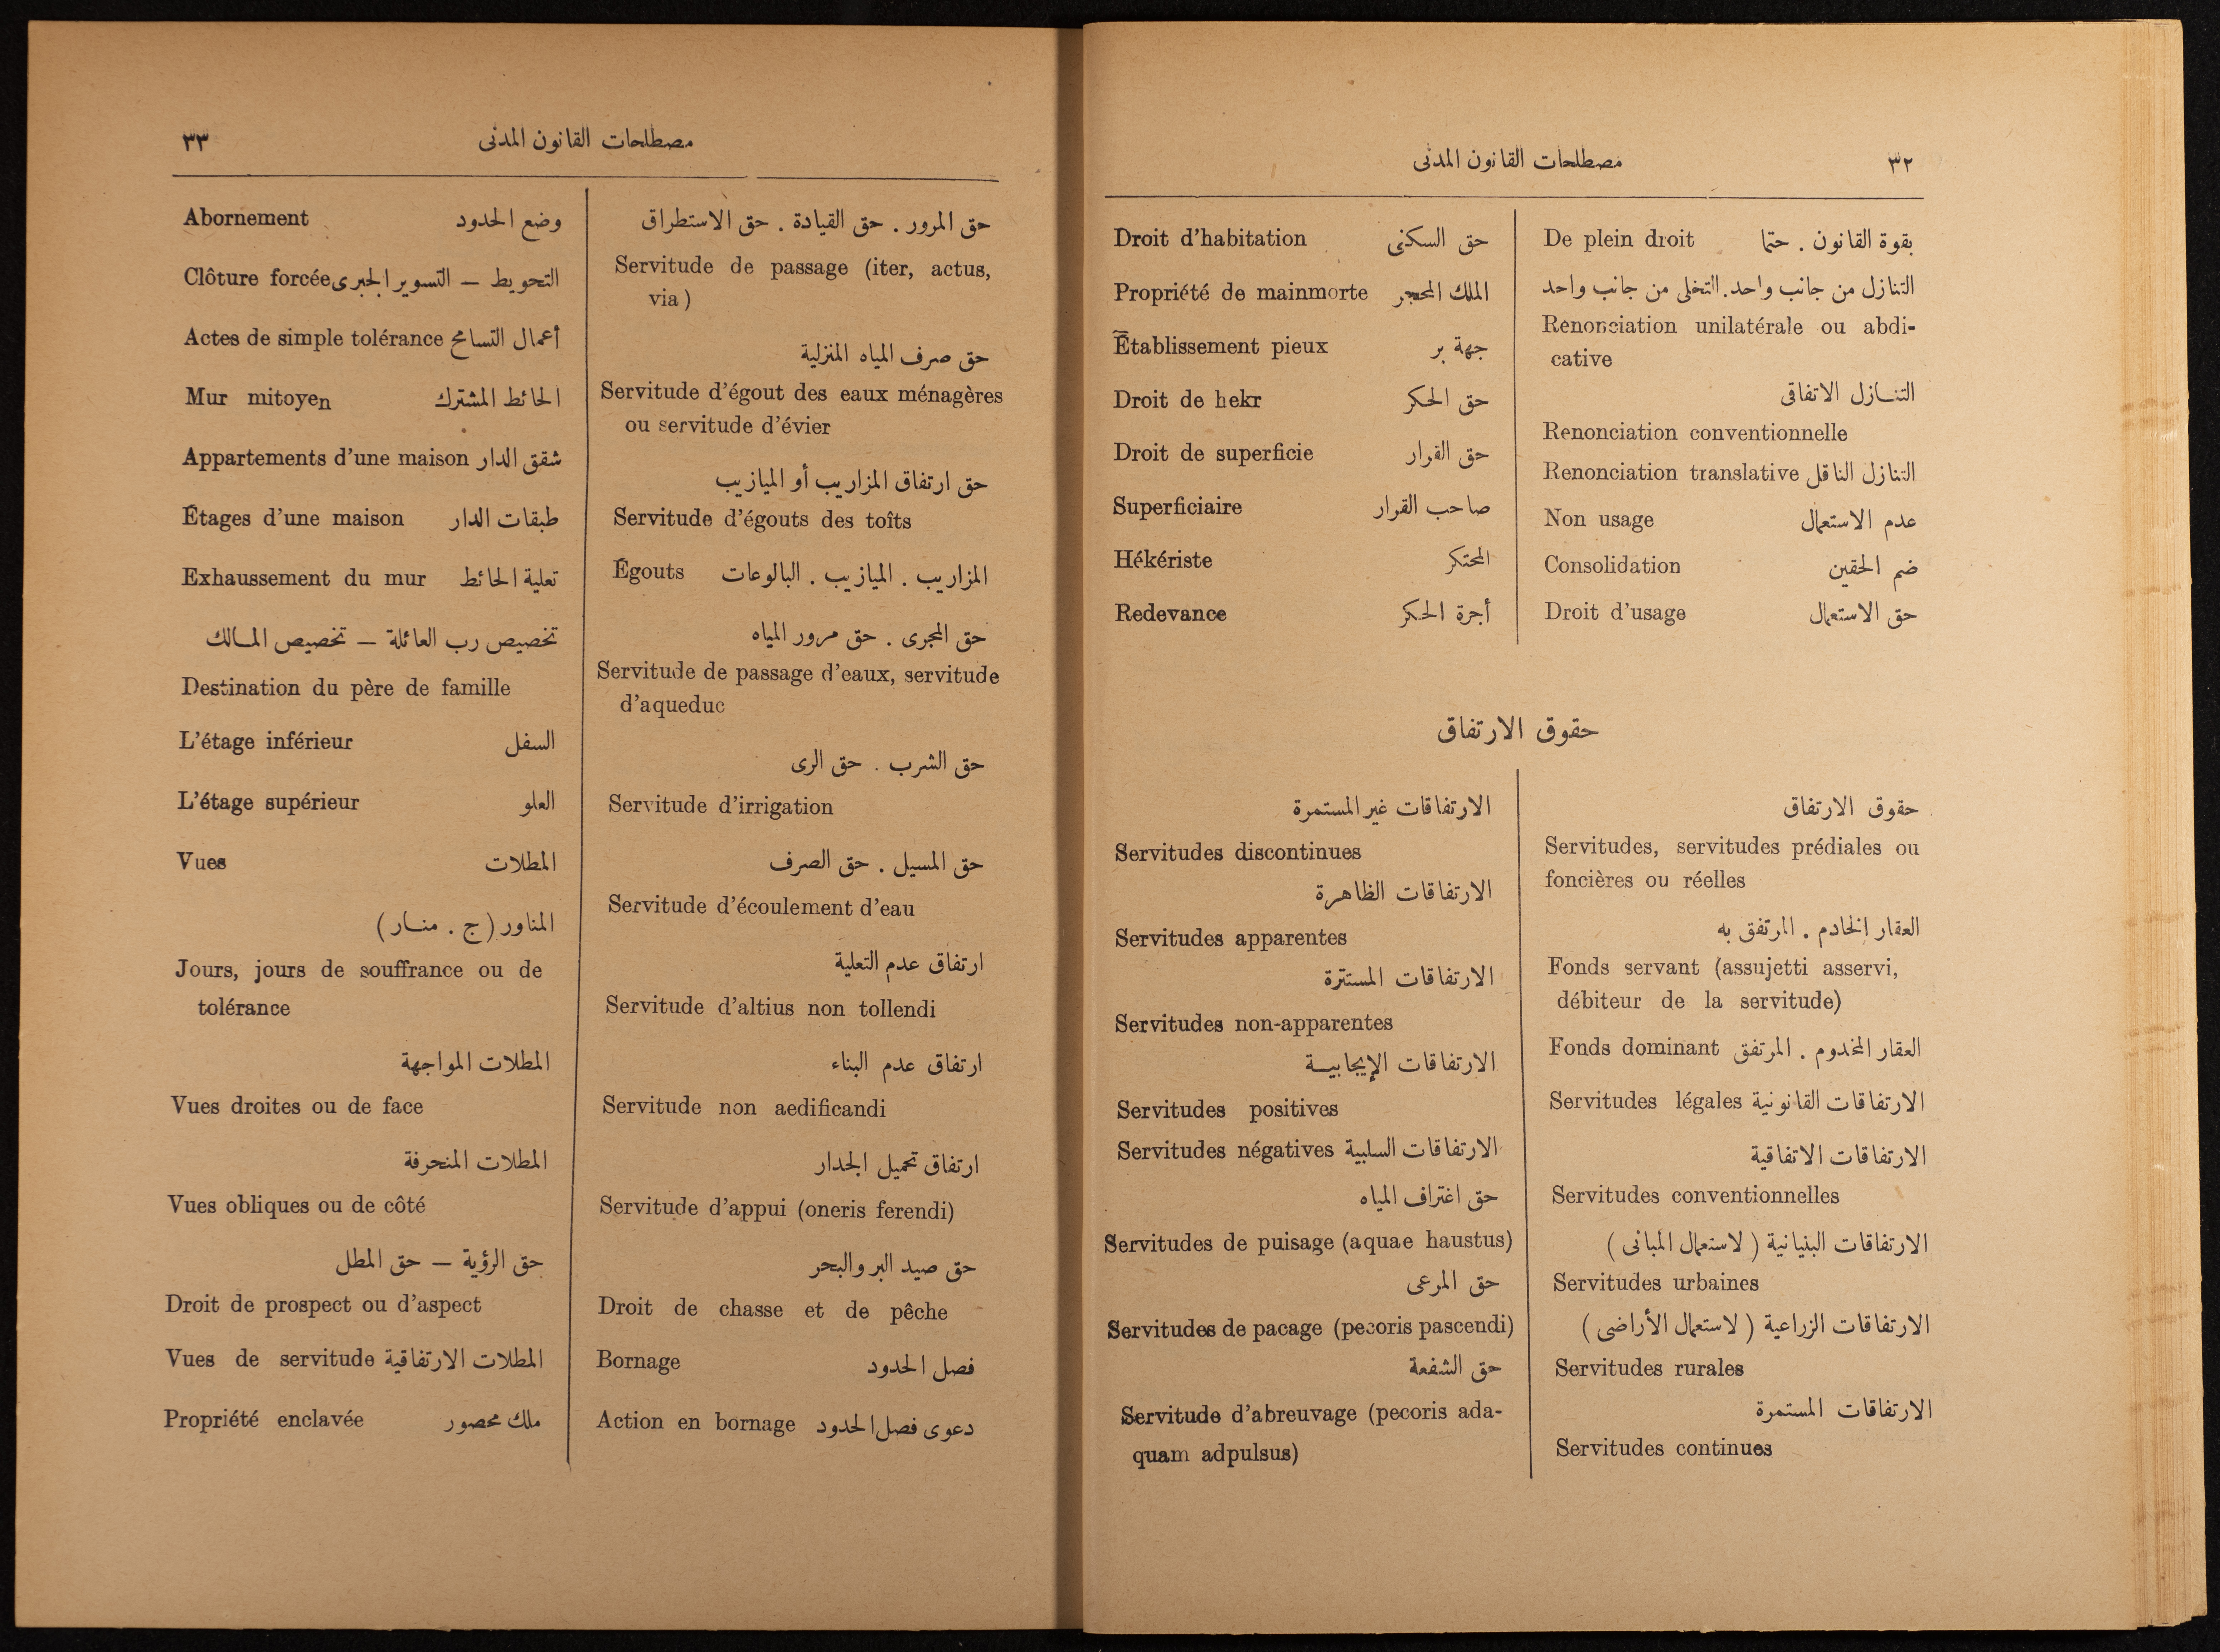 ٣٢
مصطلحات القانون المدنى
De plein droit بقوة القانون . حتما
التنازل من جانب واحد. التخلى من جانب واحد
Renonciation unilatérale ou abdi-
cative
التنازل الاتفاقى
Renonciation conventionnelle
Renonciation translative التنازل الناقل
Non usage عدم الاستعمال
Consolidation ضم الحقين
Droit d'usage حق الاستعمال
Droit d'habitation حق السكنى
Propriété de mainmorte الملك المحجر
Établissement pieux جهة بر
Droit de hekr حق الحكر
Droit de superficie حق القرار
Superficiaire صاحب القرار
Hékériste المحتكر
Redevance أجرة الحكر
حقوق الارتفاق
حقوق الارتفاق
Servitudes, servitudes prédiales ou
foncières ou réelles
العقار الخادم . المرتفق به
Fonds servant (assujetti asservi,
débiteur de la servitude)
Fonds dominant العقار المخدوم . المرتفق
Servitudes légales الارتفاقات القانونية
الارتفاقات الاتفاقية
Servitudes conventionnelles
الارتفاقات البنيانية ( لاستعمال المبانى )
Servitudes urbaines
الارتفاقات الزراعية ( لاستعمال الأراضى )
Servitudes rurales
الارتفاقات المستمرة
Servitudes continues
الارتفاقات غير المستمرة
Servitudes discontinues
الارتفاقات الظاهرة
Servitudes apparentes
الارتفاقات المستترة
Servitudes non-apparentes
الارتفاقات الإيجابية
Servitudes positives
Servitudes négatives الارتفاقات السلبية
حق اغتراف المياه
Servitudes de puisage (aquae haustus)
حق المرعى
Servitudes de pacage (pecoris pascendi)
حق الشفعة
Servitude d'abreuvage (pecoris ada-
quam adpulsus)
مصطلحات القانون المدنى
٣٣
حق المرور . حق القيادة . حق الاستطراق
Servitude de passage (iter, actus,
via)
حق صرف المياه المنزلية
Servitude d'égout des eaux ménagères
ou servitude d'évier
حق ارتفاق المزاريب أو الميازيب
Servitude d'égouts des toîts
Égouts المزاريب . الميازيب . البالوعات
حق المجرى . حق مرور المياه
Servitude de passage d'eaux, servitude
d'aqueduc
حق الشرب . حق الرى
Servitude d'irrigation
حق المسيل . حق الصرف
Servitude d'écoulement d'eau
ارتفاق عدم التعلية
Servitude d'altius non tollendi
ارتفاق عدم البناء
Servitude non aedificandi
ارتفاق تحميل الجدار
Servitude d'appui (oneris ferendi)
حق صيد البر والبحر
Droit de chasse et de pêche
Bornage فصل الحدود
Action en bornage دعوى فصل الحدود
Abornement وضع الحدود
Clôture forcée التحويط — التسوير الجبرى
Actes de simple tolérance أعمال التسامح
Mur mitoyen الحائط المشترك
Appartements d'une maison شقق الدار
Étages d'une maison طبقات الدار
Exhaussement du mur تعلية الحائط
تخصيص رب العائلة — تخصيص المالك
Destination du père de famille
L'étage inférieur السفل
L'étage supérieur العلو
Vues المطلات
المناور (ج . منار)
Jours, jours de souffrance ou de
tolérance
المطلات المواجهة
Vues droites ou de face
المطلات المنحرفة
Vues obliques ou de côté
حق الرؤية — حق المطل
Droit de prospect ou d'aspect
Vues de servitude المطلات الارتفاقية
Propriété enclavée ملك محصور